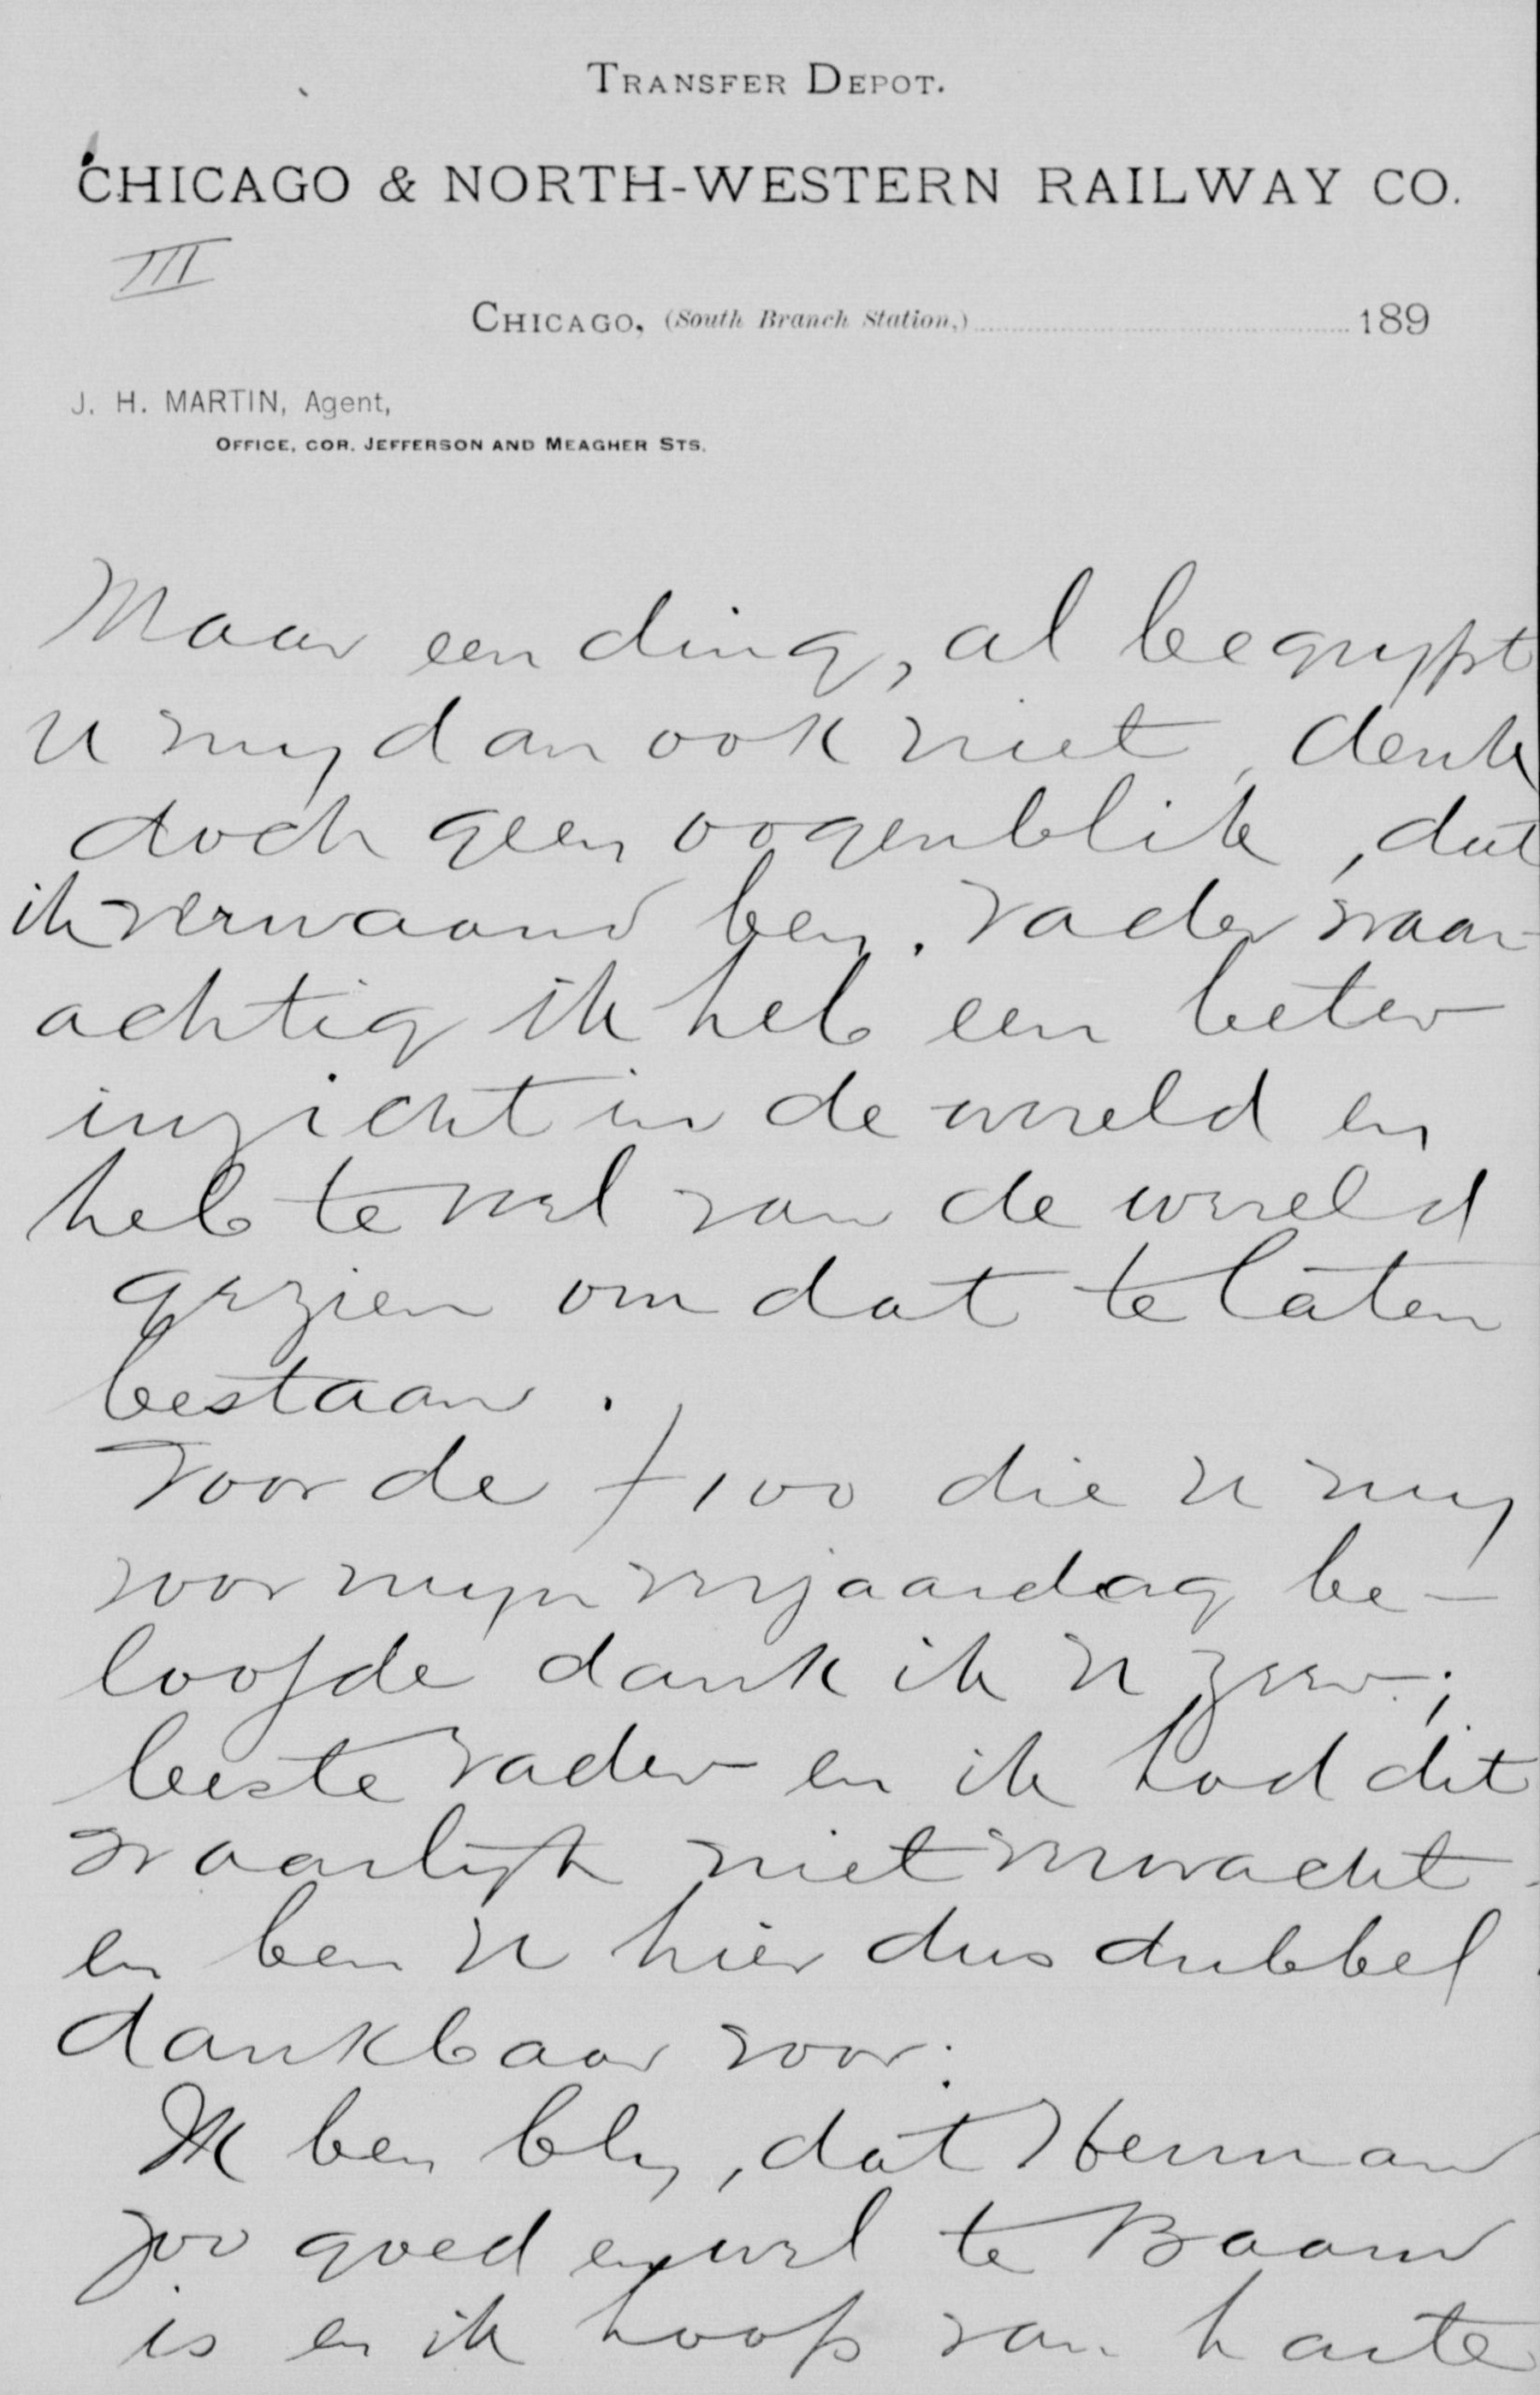 TRANSFER DEPOT.
CHICAGO & NORTH-WESTERN RAILWAY CO.
III
CHICAGO, (South Branch Station,) 189
J. H. MARTIN, Agent,
OFFICE, COR. JEFFERSON AND MEAGHER STS.
Maar een ding, al begrijpt
u mij dan ook niet, denk
doch geen oogenblik, dat
ik verwaand ben. Vader waar-
achtig ik heb een beter
inzicht in de wereld en
heb te veel van de wereld
gezien om dat te laten
bestaan.
Voor de f 100 die u mij
voor mijn verjaardag be-
loofde dank ik u zeer;
beste Vader en ik had dit
waarlijk niet verwacht
en ben u hier dus dubbel
dankbaar voor.
Ik ben blij, dat Herman
zoo goed en wel te Baarn
is en ik hoop van harte